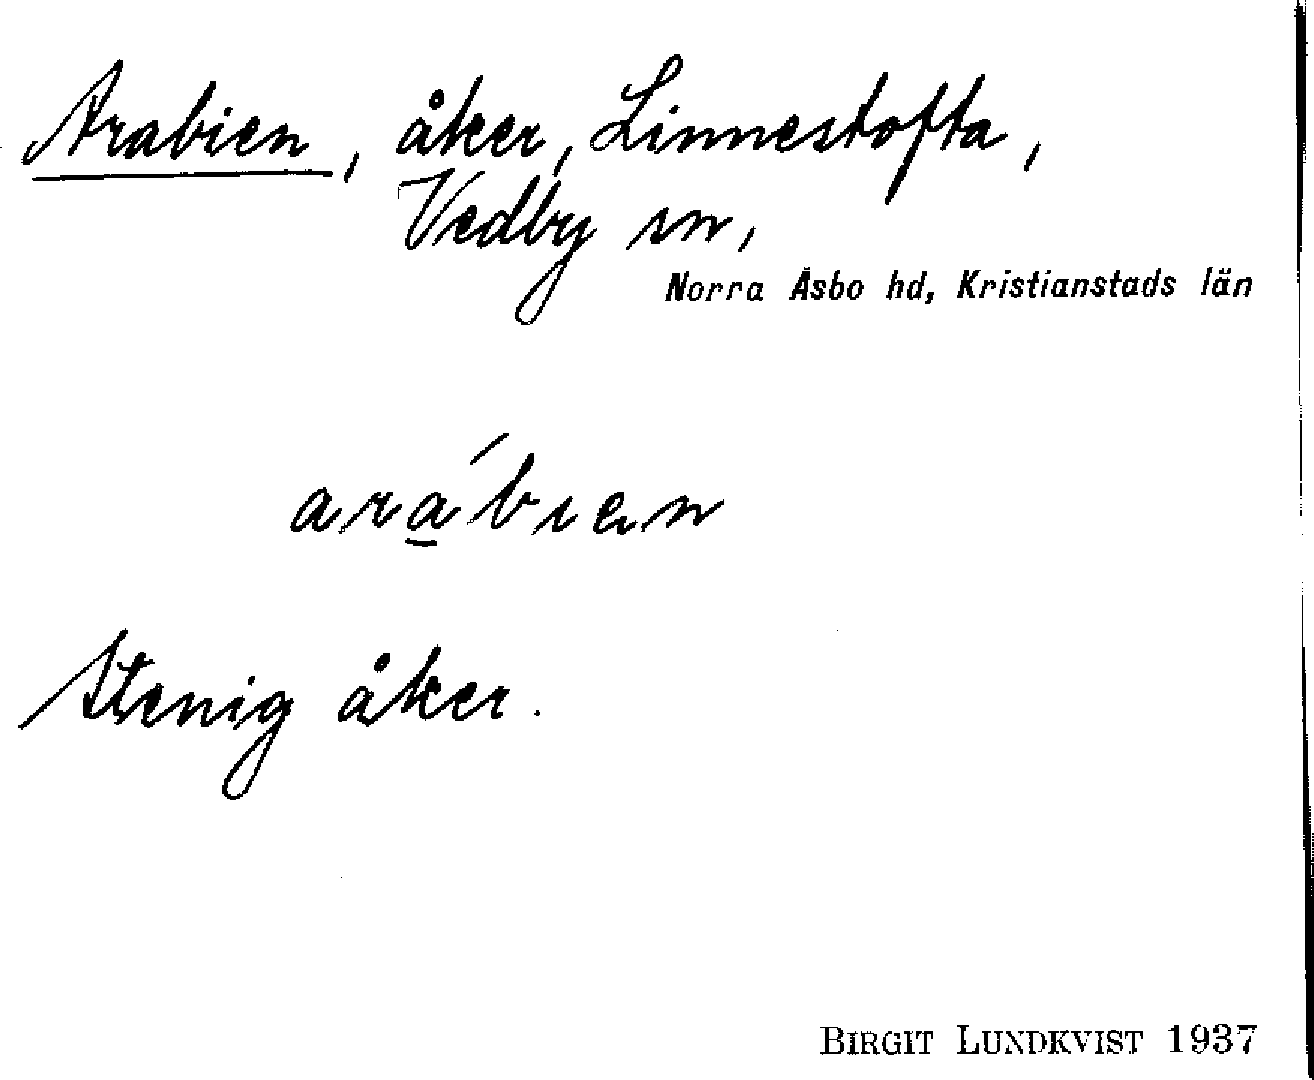 Arabien, åker, Linnestofta,
Vedby sn,
Norra Åsbo hd, Kristianstads län
ara̲´bıen
Stenig åker.
BIRGIT LUNDKVIST 1937